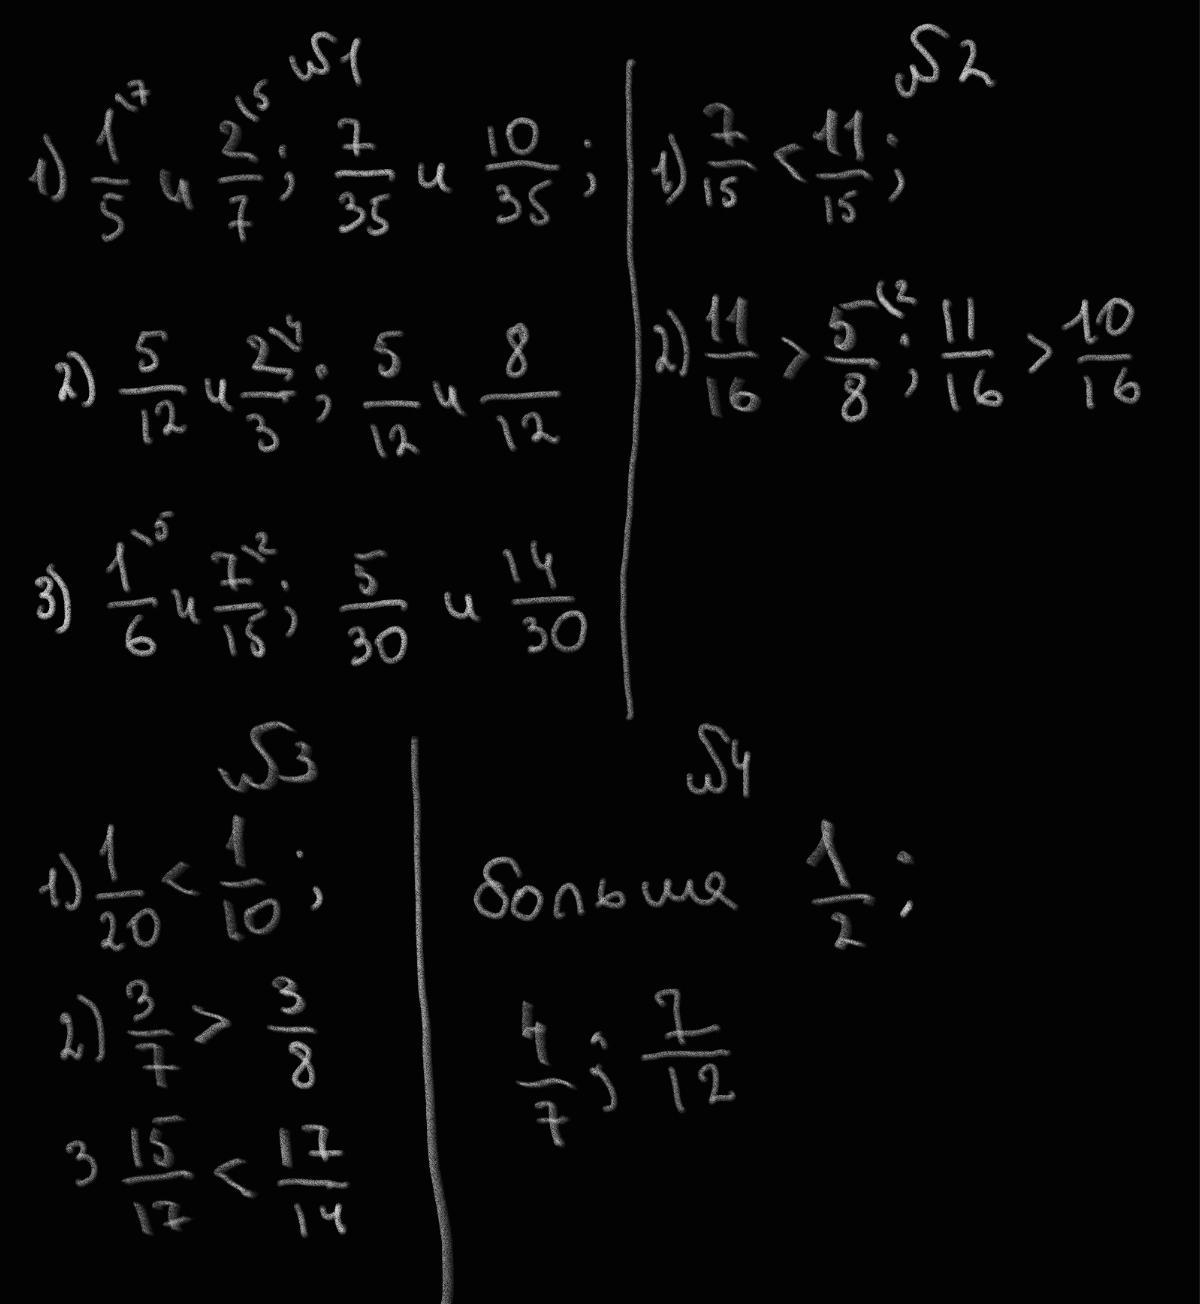 №1
1) 1\7/5 и 2\5/7; 7/35 и 10/35;
2) 5/12 и 2\4/3; 5/12 и 8/12
3) 1\5/6 и 7\2/15; 5/30 и 14/30
№2
1) 7/15 < 11/15;
2) 11/16 > 5\2/8; 11/16 > 10/16
№3
1) 1/20 < 1/10;
2) 3/7 > 3/8
3 15/17 < 17/14
№4
больше 1/2;
4/7; 7/12